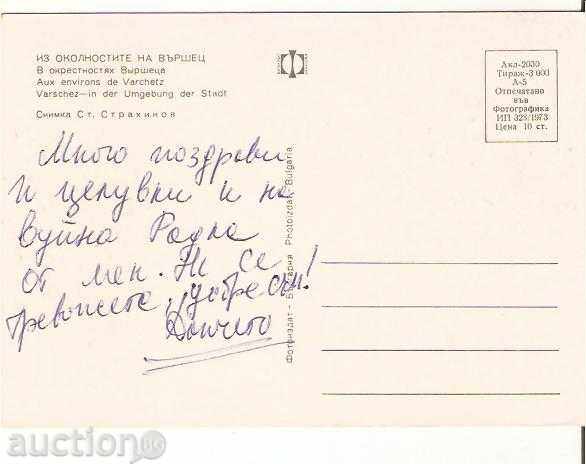 ИЗ ОКОЛНОСТИТЕ НА ВЪРШЕЦ
В окрестностях Выршеца
Aux environs de Varchetz
Varschez—in der Umgebung der Stadt
Снимка Ст. Страхинов
Акл-2030
Тираж-3 000
А-5
Отпечатано
във
Фотографика
ИП 323/1973
Цена 10 ст.
Много поздрави
и целувки и на
вуйна Радка
от мен. Не се
тревожете, добре съм!
Фотоиздат – България Photoizdat Bulgaria
auction BG